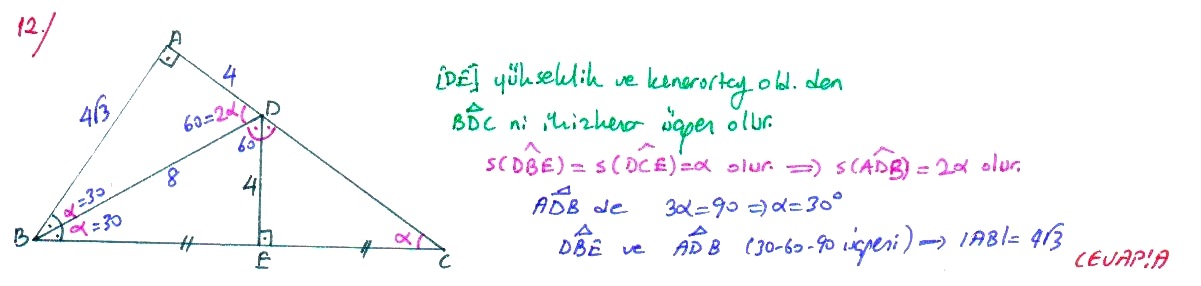 12./
A
4
4√3
60=2α
D
60
8
4
α=30
α=30
B
E
α
C
[DE] yükseklik ve kenarortay old. den
BDC ni ikizkenar üçgen olur.
s(DBE) = s(DCE)=α olur. ⟹ s(ADB) = 2α olur.
ADB de 3α=90 ⟹ α=30°
DBE ve ADB (30-60-90 üçgeni) → |AB|= 4√3
CEVAP:A